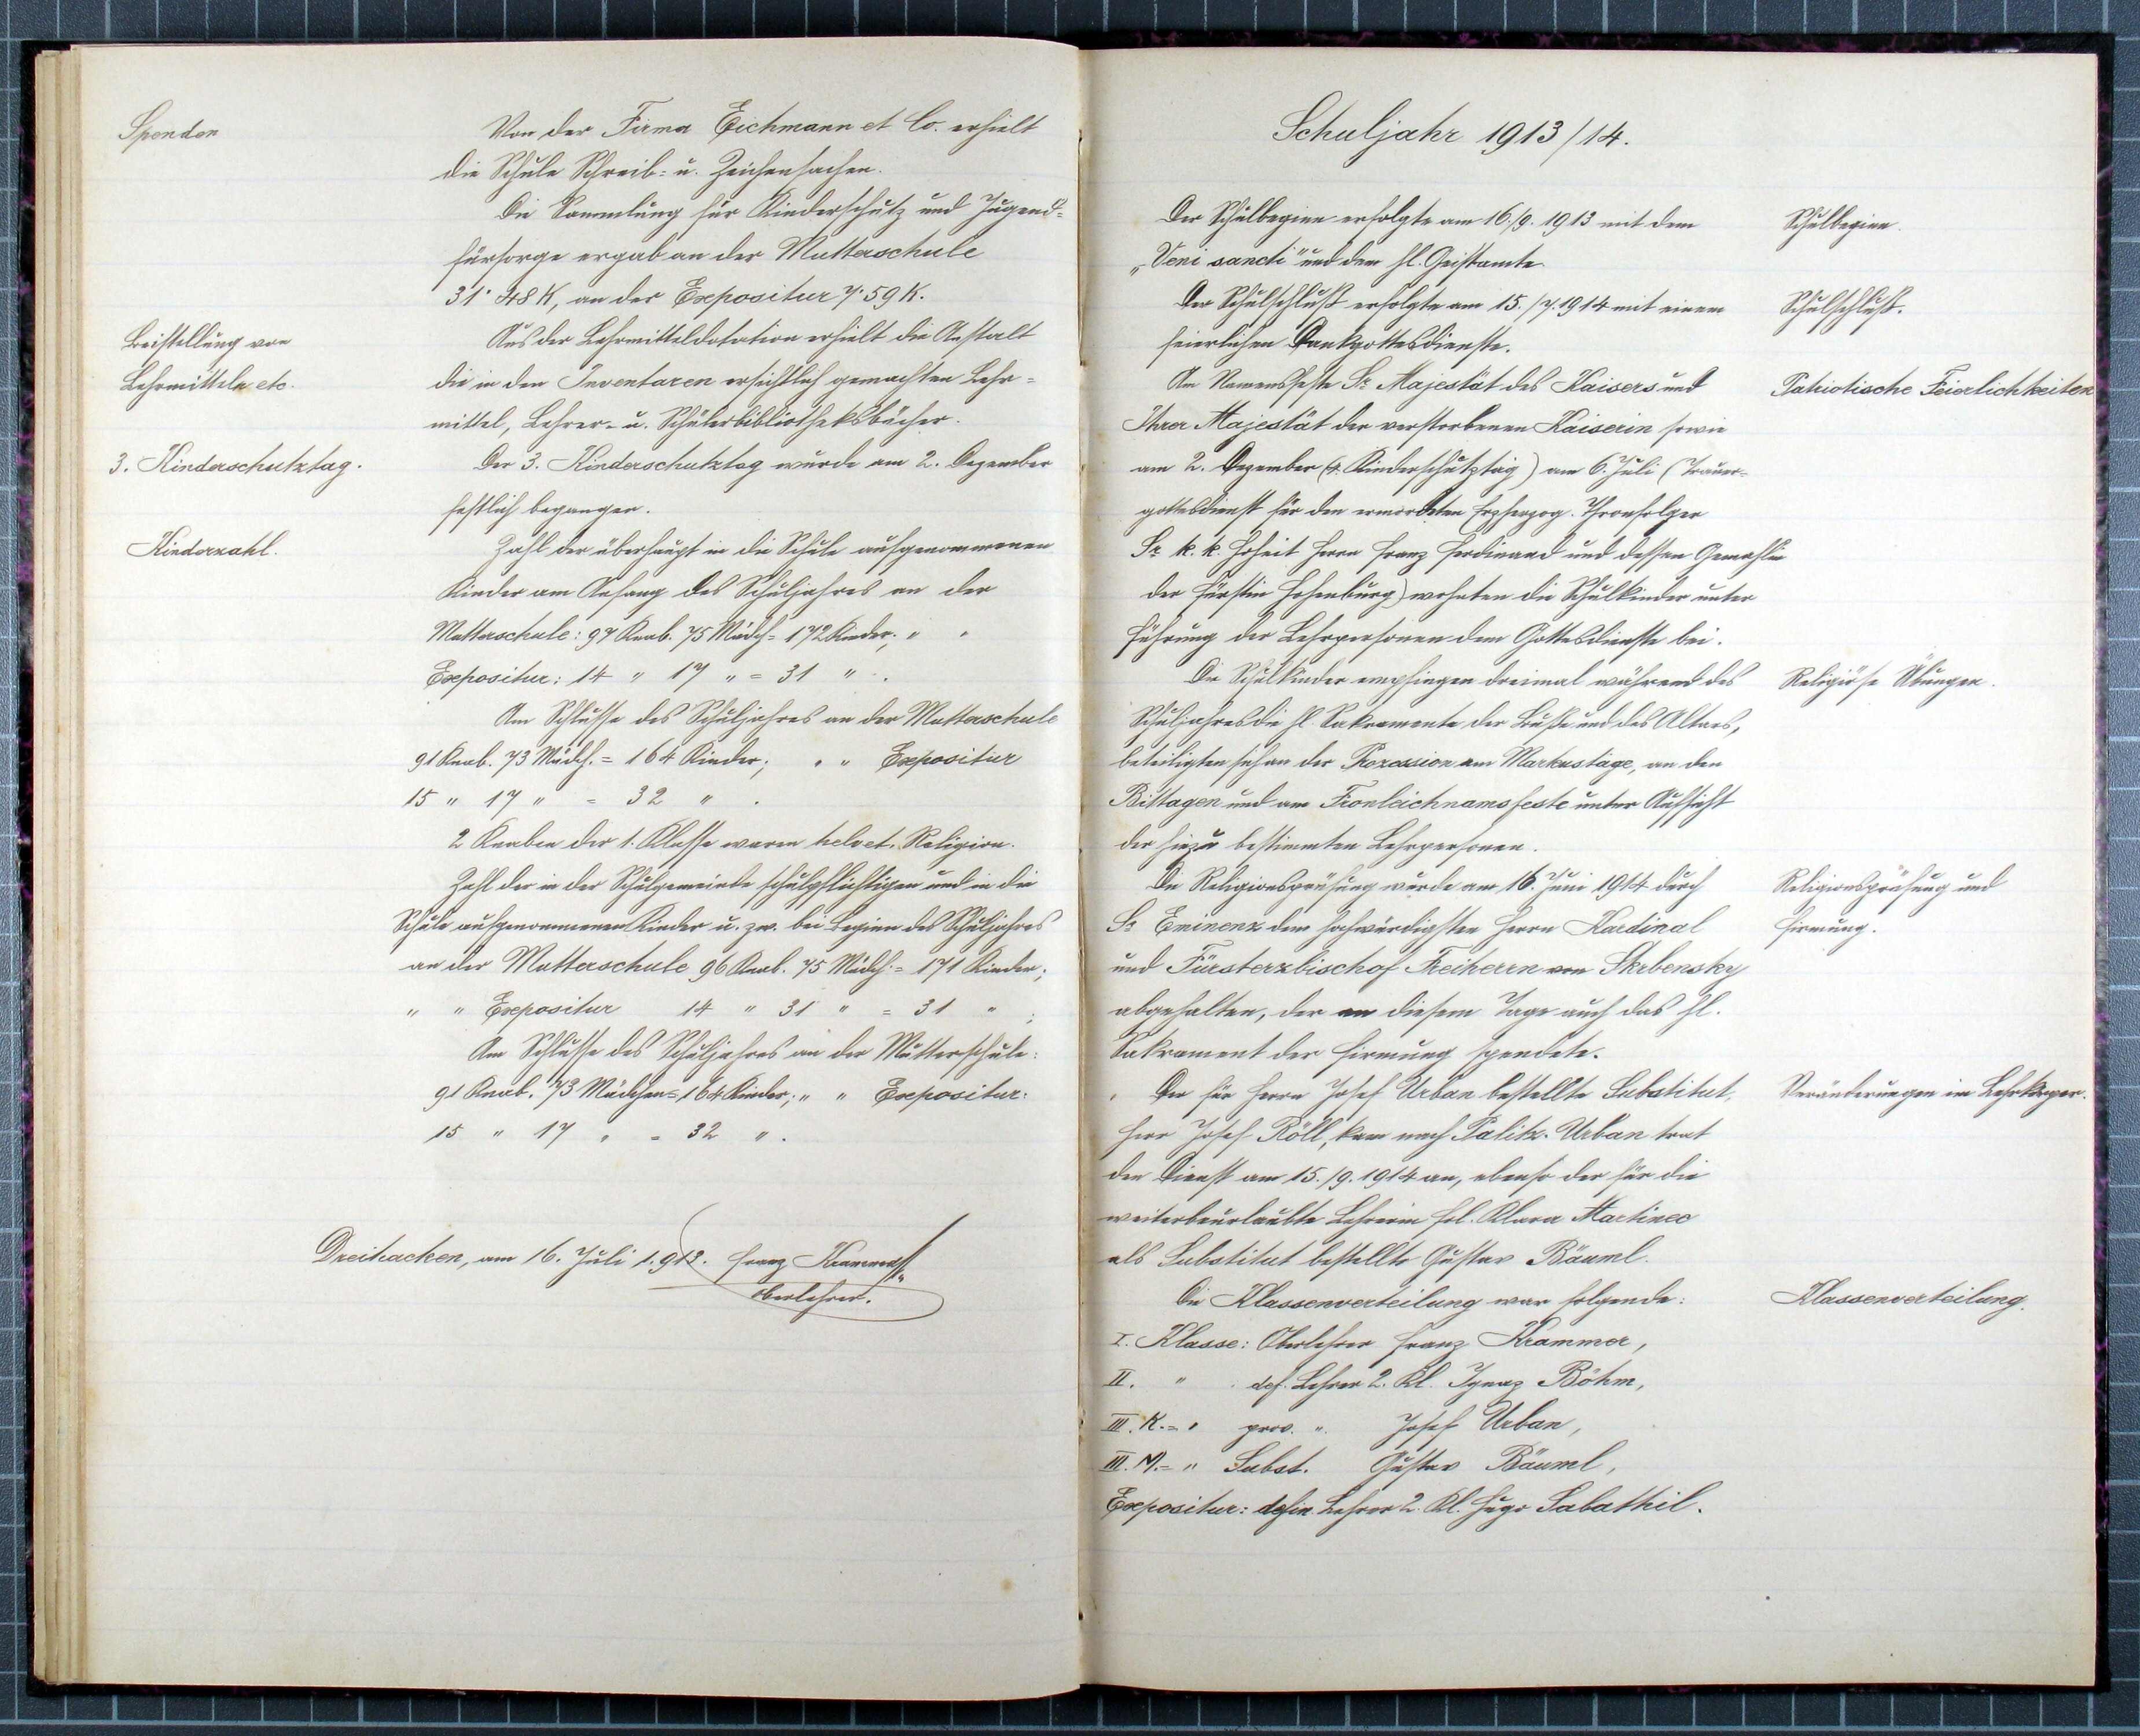 Spenden
Von der Firma Eichmann et Co. erhielt
die Schule Schreib- u. Zeichensachen.
Die Sammlung für Kinderschutz und Jugend-
fürsorge ergab an der Mutterschule
31·48 K, an der Expositur 7·59 K.
Beistellung von
Lehrmitteln etc.
Aus der Lehrmitteldotation erhielt die Anstalt
die in den Inventaren ersichtlich gemachten Lehr-
mittel, Lehrer- u. Schülerbibliotheksbücher.
3. Kinderschutztag.
Der 3. Kinderschutztag wurde am 2. Dezember
festlich begangen.
Kinderzahl.
Zahl der überhaupt in die Schule aufgenommenen
Kinder am Anfang des Schuljahres an der
Mutterschule: 97 Knab. 75 Mädch = 172 Kinder; " "
Expositur: 14 " 17 " = 31 " .
Am Schlusse des Schuljahres an der Mutterschule
91 Knab. 73 Mädch. = 164 Kinder; " " Expositur
15 " 17 " = 32 " .
2 Knaben der 1. Klasse waren helvet. Religion.
Zahl der in der Schulgemeinde schulpflichtigen und in die
Schule aufgenommenen Kinder u. zw. bei Beginn des Schuljahres
an der Mutterschule 96 Knab. 75 Mädch. = 171 Kinder;
" " Expositur 14 " 31 " = 31 " ;
Am Schlusse des Schuljahres an der Mutterschule:
91 Knab. 73 Mädchen = 164 Kinder; " " Expositur:
15 " 17 " = 32 " .
Dreihacken, am 16. Juli 1913. Franz Krammer
Oberlehrer.
Schuljahr 1913/14.
Der Schulbeginn erfolgte am 16./9. 1913 mit dem
„Veni sancti" und dem hl. Geistamte.
Schulbeginn.
Der Schulschluß erfolgte am 15./7. 1914 mit einem
feierlichen Dankgottesdienste.
Schulschluß.
Am Namensfeste Sr. Majestät des Kaisers und
Ihrer Majestät der verstorbenen Kaiserin sowie
am 2. Dezember (4. Kinderschutztag) am 6. Juli (Trauer-
gottesdienst für den ermordeten Erzherzog. Thronfolger
Sr. k. k. Hoheit Herrn Franz Ferdinand und dessen Gemahlin
der Fürstin Hohenburg) wohnten die Schulkinder unter
Führung der Lehrpersonen dem Gottesdienste bei.
Patriotische Feierlichkeiten
Die Schulkinder empfingen dreimal während des
Schuljahres die hl. Sakramente der Buße und des Altars,
beteiligten sich an der Prozession am Markustage, an den
Bittagen und am Fronleichnamsfeste unter Aufsicht
der hiezu bestimmten Lehrpersonen.
Religiöse Übungen.
Die Religionsprüfung wurde am 16. Juni 1914 durch
Sr. Eminenz dem hochwürdigsten Herrn Kardinal
und Fürsterzbischof Freiherrn von Skrbensky
abgehalten, der an diesem Tage auch das hl.
Sakrament der Firmung spendete.
Religionsprüfung und
Firmung.
Der für Herrn Josef Urban bestellte Substitut,
Herr Josef Röll, kam nach Palitz. Urban trat
den Dienst am 15./9. 1914 an, ebenso der für die
weiterbeurlaubte Lehrerin Frl. Klara Martinec
als Substitut bestellte Gustav Bäuml.
Veränderungen im Lehrkörper.
Die Klassenverteilung war folgende:
Klassenverteilung.
I. Klasse: Oberlehrer Franz Krammer,
II. " def. Lehrer 2. Kl. Ignaz Böhm,
III. K.- " prov. " Josef Urban,
III. M.- " Subst. Gustav Bäuml,
Expositur: defin. Lehrer 2. Kl. Hugo Sabathil.